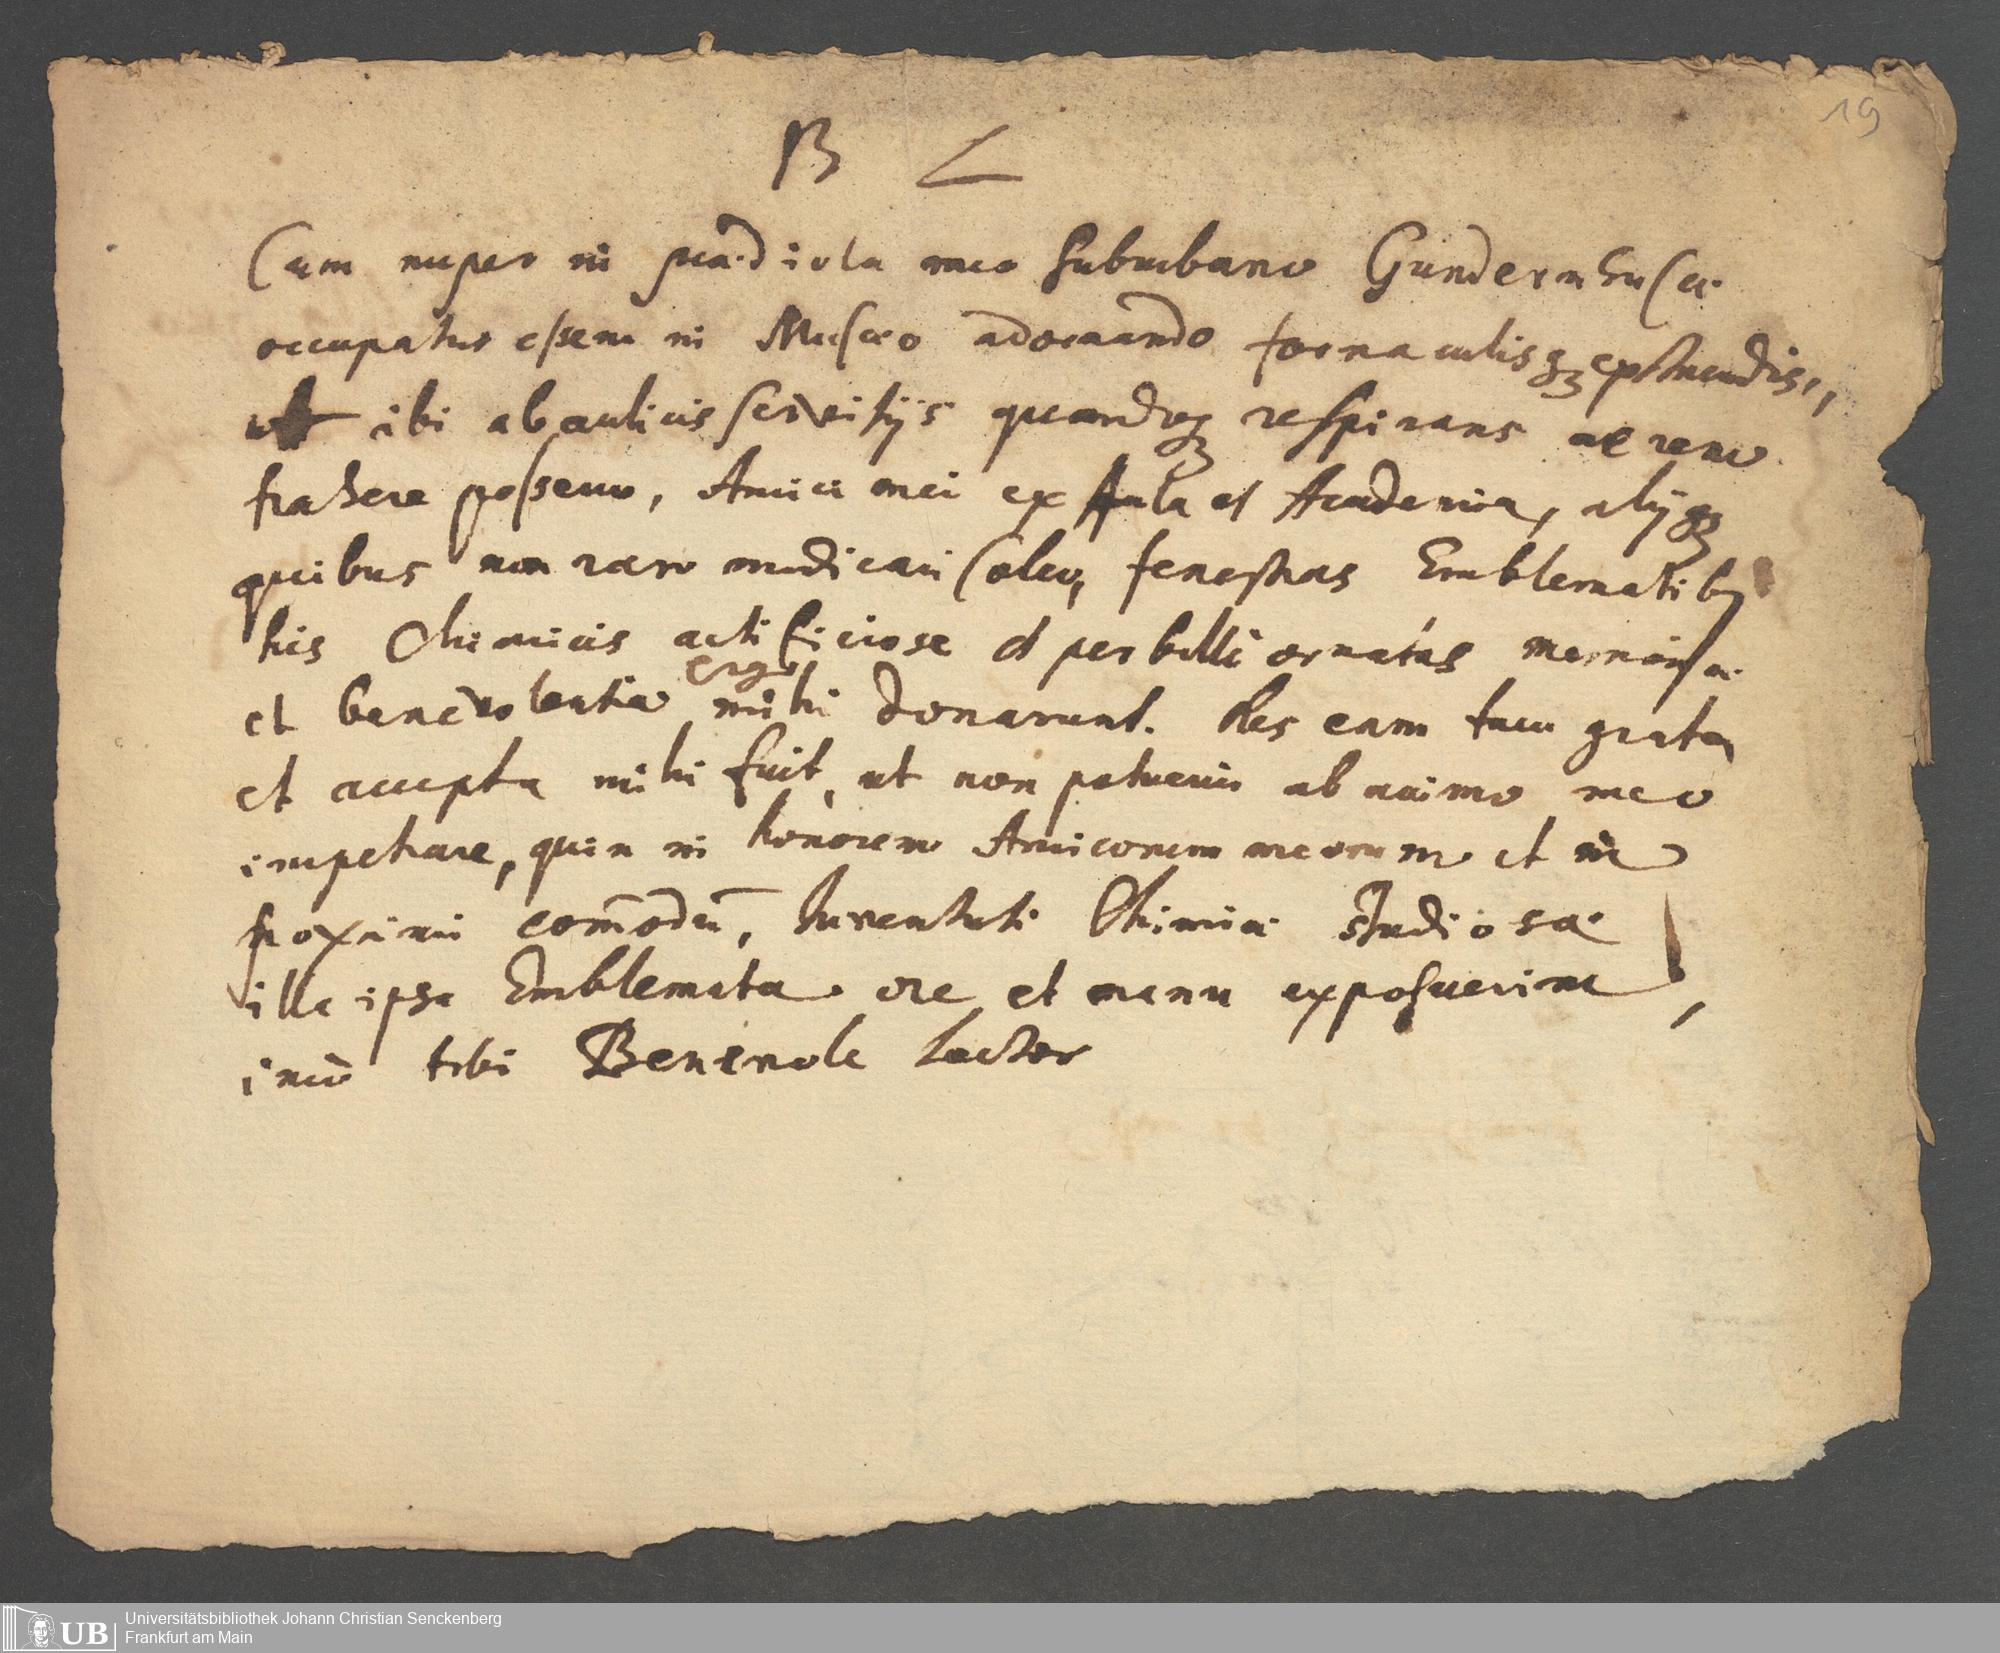 19
B L
Cum nuper in prædiolo meo suburbano Gundernhusæ
occupatus essem in Musæo adornando fornaculisq₃ exstruendis,
ut ibi ab aulicis servitijs quandoq₃ respirans aerem
trahere possem, Amici mei ex Aula et Academia, alijq₃
quibus non raro medicari soleo, fenestras Emblematibꝫ
his Chimicis artificiose et perbelle ornatas memoriæ
ergo
et benevolentiæ mihi donarunt. Res eam tam grata
et accepta mihi fuit, ut non potuerim ab animo meo
impetrare, quin in honorem Amicorum meorum et in
proximi com̄odū, Iuventuti Chimiæ studiosæ
illa ipsa Emblemata ore et manu exposuerim,
imo tibi Benevole Lector
UB
Universitätsbibliothek Johann Christian Senckenberg
Frankfurt am Main